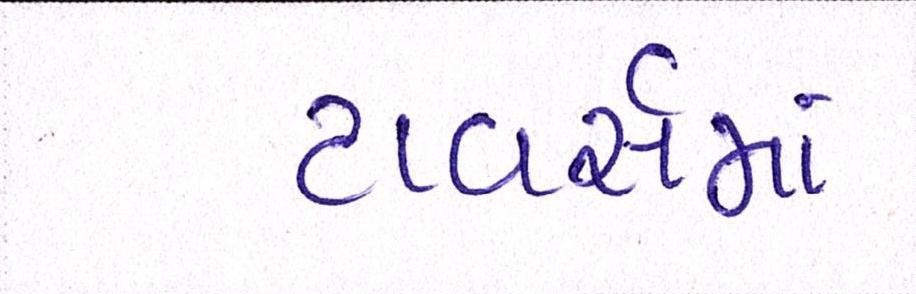 ટાવર્સમાં